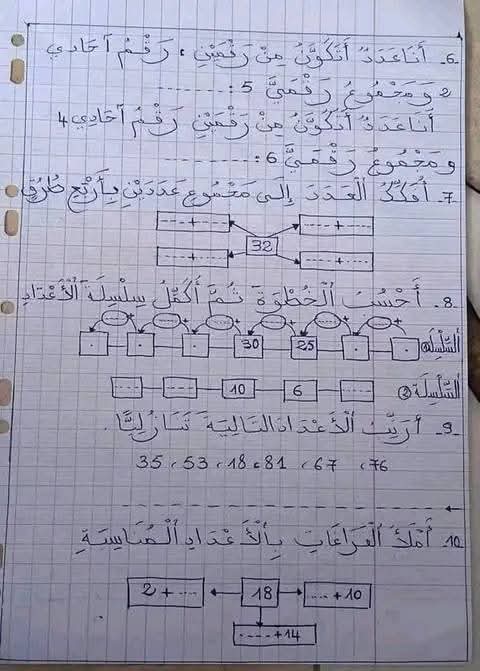 6- أَنَا عَدَدٌ أَتَكَوَّنُ مِنْ رَقْمَيْنِ، رَقْمُ آحَادِي
2 وَمَجْمُوعُ رَقْمَيَّ 5: --------
أَنَا عَدَدٌ أَتَكَوَّنُ مِنْ رَقْمَيْنِ رَقْمُ آحَادِي 4
وَمَجْمُوعُ رَقْمَيَّ 6: --------
7- أُفَكِّكُ الْعَدَدَ إِلَى مَجْمُوعِ عَدَدَيْنِ بِأَرْبَعِ طُرُقٍ
----+---- ----+----
32
----+---- ----+----
8- أَحْسُبُ الْخُطْوَةَ ثُمَّ أُكَمِّلُ سِلْسِلَةَ الْأَعْدَادِ
---+ ---+ ---+ ---+ ---+ ---+
السِّلْسِلَة① . . 25 30 . . .
السِّلْسِلَة② ---- 6 10 ---- ----
9- أُرَتِّبُ الْأَعْدَادَ التَّالِيَةَ تَنَازُلِيًّا.
76، 67، 81، 18، 53، 35
10- أَمْلَأُ الْفَرَاغَاتِ بِالْأَعْدَادِ الْمُنَاسِبَةِ
2 + --- 18 --- + 10
---- + 14